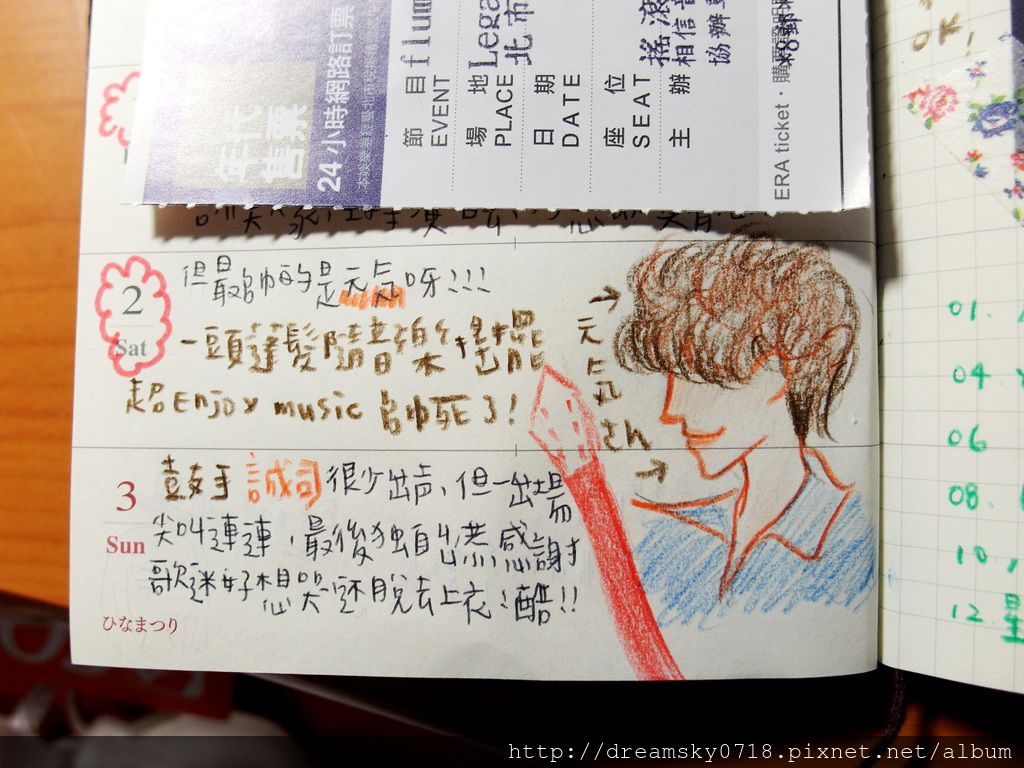 年代售票
24小時網路訂票
節目 flum
EVENT
場地 Lega
PLACE 北市
日期
DATE
座位 搖滾
SEAT
主辦 相信音
協辦
ERA ticket・購票證明
2
Sat
但最帥的是元気呀!!!
一頭蓬髮隨音樂搖擺
超Enjoy music 帥死了!
元気さん
3
Sun
ひなまつり
鼓手誠司很少出声、但一出場
尖叫連連,最後独自出燕感謝
歌迷好想哭還脫去上衣!酷!!
01.
04
06
08.
10,
12.星
http://dreamsky0718.pixnet.net/album